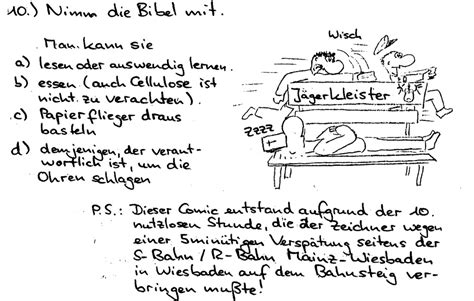 10.) Nimm die Bibel mit.
Man kann sie
a) lesen oder auswendig lernen.
b) essen (auch Cellulose ist
nicht zu verachten).
c) Papierflieger draus
basteln
d) demjenigen, der verant-
wortlich ist, um die
Ohren schlagen
Wisch
Jägerkleister
ZZZZ
P.S.: Dieser Comic entstand aufgrund der 10.
nutzlosen Stunde, die der Zeichner wegen
einer 5minütigen Verspätung seitens der
S-Bahn / R-Bahn Mainz-Wiesbaden
in Wiesbaden auf dem Bahnsteig ver-
bringen mußte!